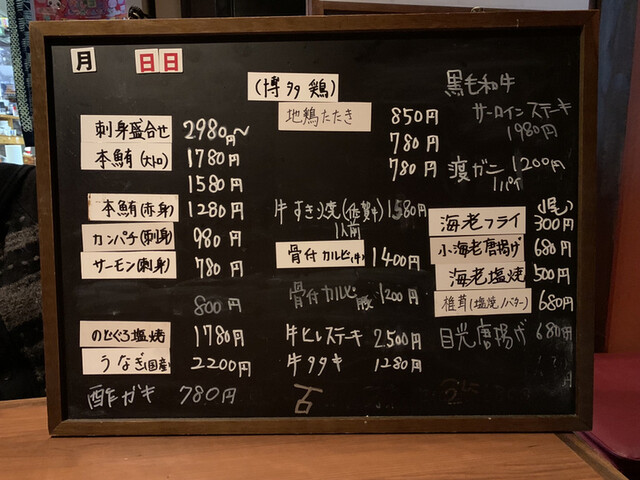 月 日日
刺身盛合せ 2980円〜
本鮪(大トロ) 1780円
1580円
本鮪(赤身) 1280円
カンパチ(刺身) 980円
サーモン(刺身) 780円
800円
のどぐろ塩焼 1780円
うなぎ(国産) 2200円
酢ガキ 780円
(博多鶏)
地鶏たたき 850円
780円
780円
牛すき焼(佐賀牛) 1580円
1人前
骨付カルビ(牛) 1400円
骨付カルビ豚 1200円
牛ヒレステーキ 2.500円
牛タタキ 1280円
黒毛和牛
サーロインステーキ
1980円
渡ガニ 1200円
1パイ
海老フライ (1尾) 300円
小海老唐揚げ 680円
海老塩焼 500円
椎茸(塩焼/バター) 680円
目光唐揚げ 680円